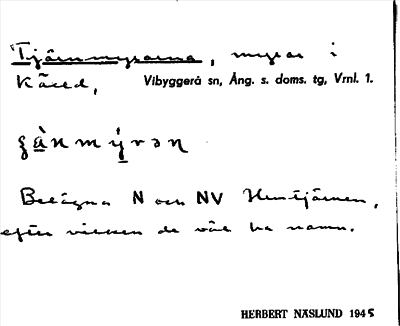 Tjärnmyrarna, myrar i
Käxed, Vibyggerå sn, Ång. s. doms. tg, Vrnl. 1.
Belägna N och NV Hemtjärnen,
efter vilken de väl ha namn.
HERBERT NÄSLUND 1945